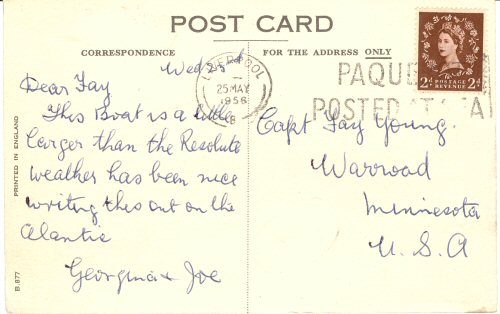 POST CARD
CORRESPONDENCE
FOR THE ADDRESS ONLY
Wed 23rd
Dear Fay
This Boat is a little
larger than the Resolute
weather has been nice
writing this out on the
Alantic
Georgina & Joe
LIVERPOOL
25 MAY
1956
PAQUE
POSTED AT SEA
2d POSTAGE REVENUE 2d
Capt Fay Young
Warroad
Minnesota
U.S.A
PRINTED IN ENGLAND
B.877